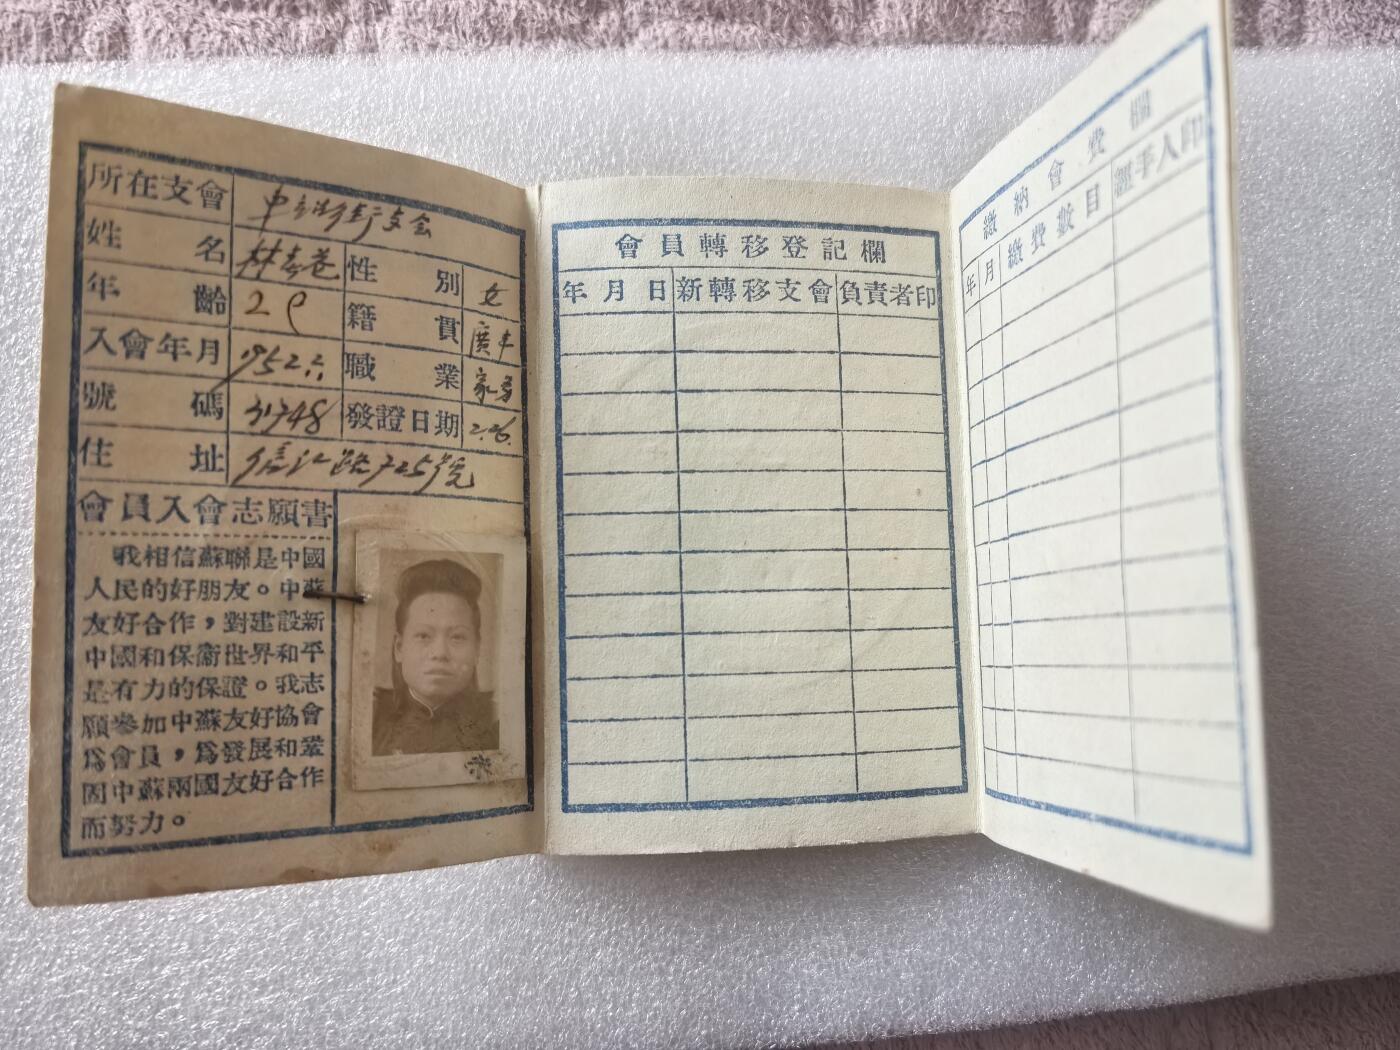 所在支會
姓名 林春蓮 性別 女
年齡 29 籍貫 廣丰
入會年月 1952.六. 職業 家务
號碼 31748 發證日期 2.26.
住址 信江路725号
會員入會志願書
我相信蘇聯是中國
人民的好朋友。中蘇
友好合作，對建設新
中國和保衞世界和平
是有力的保證。我志
願參加中蘇友好協會
爲會員，爲發展和鞏
固中蘇兩國友好合作
而努力。
會員轉移登記欄
年月日 新轉移支會 負責者印
繳納會費欄
年 月 繳費數目 經手人印